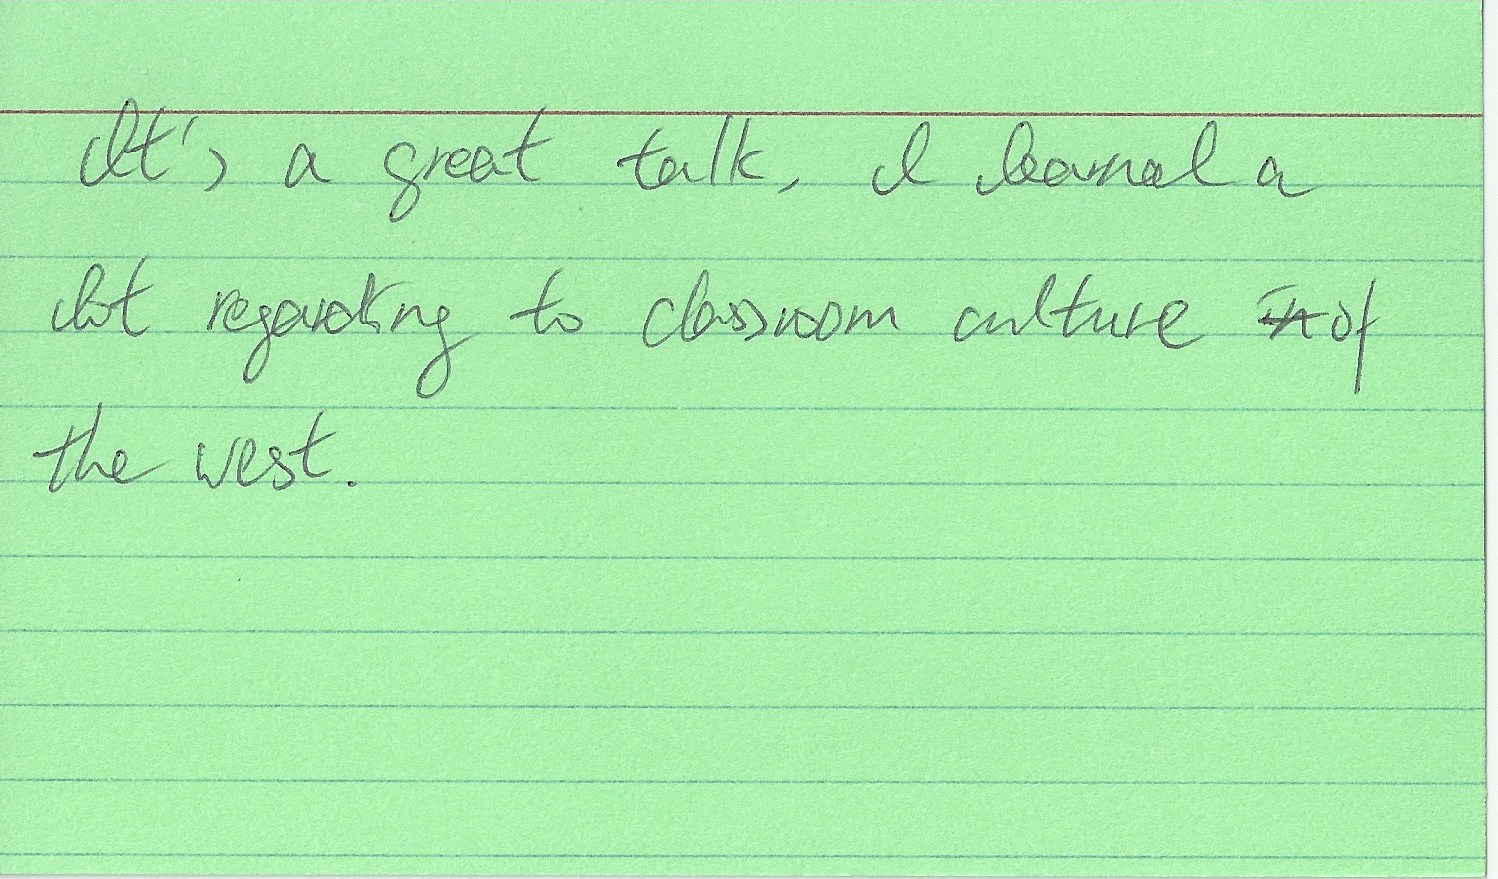 It's a great talk, I learned a
lot regarding to classroom culture in of
the west.